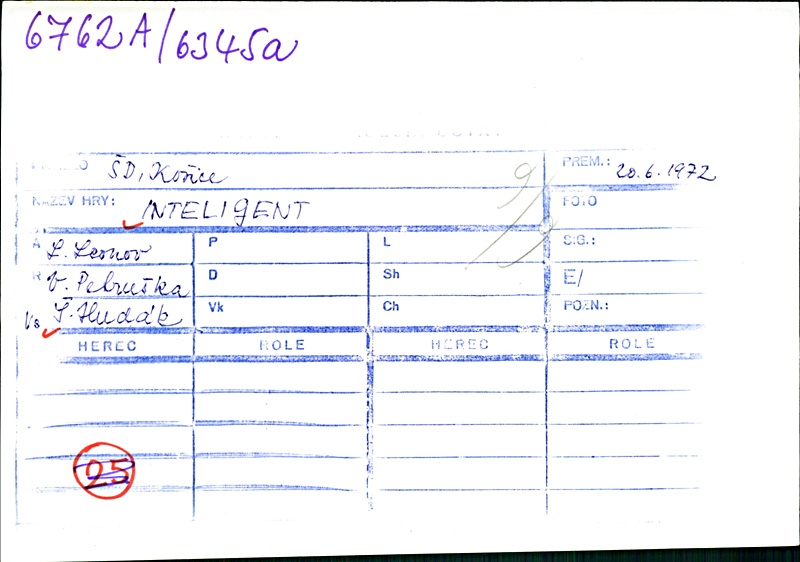 6762A/6345a
ŠD, Košice
PREM.: 20.6.1972
NÁZEV HRY: INTELIGENT
FOTO
A L. Leonov
P
L
SIG.:
R V. Petruška
D
Sh
E/
Vs Š. Hudák
Vk
Ch
POZN.:
HEREC ROLE HEREC ROLE
25